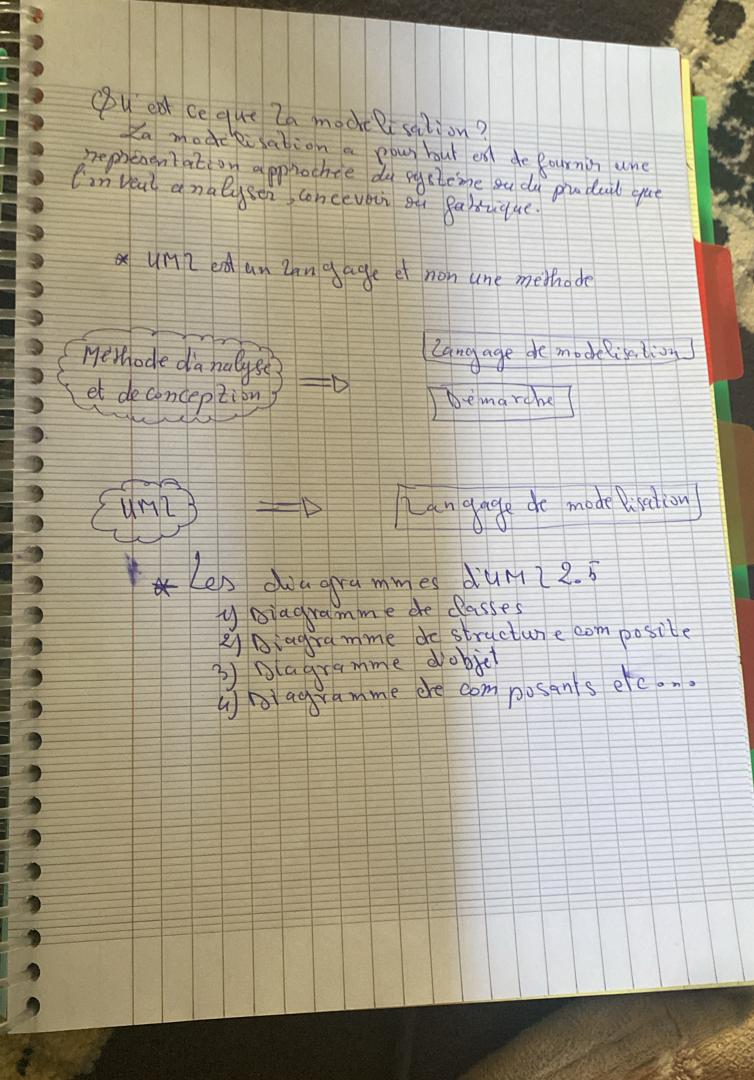 Qu'est ce que la modelisation ?
La modelisation a pour but est de fournir une
représentation approchée du système ou du produit que
l'in veut analyser, concevoir ou fabrique.
* UML est un langage et non une méthode
Méthode d'analyse
et de conception
⇒
Langage de modelisation
Démarche
UML ⇒ Langage de modelisation
* Les diagrammes d'UML 2.5
1) Diagramme de classes
2) Diagramme de structure composite
3) Diagramme d'objet
4) Diagramme de composants etc...